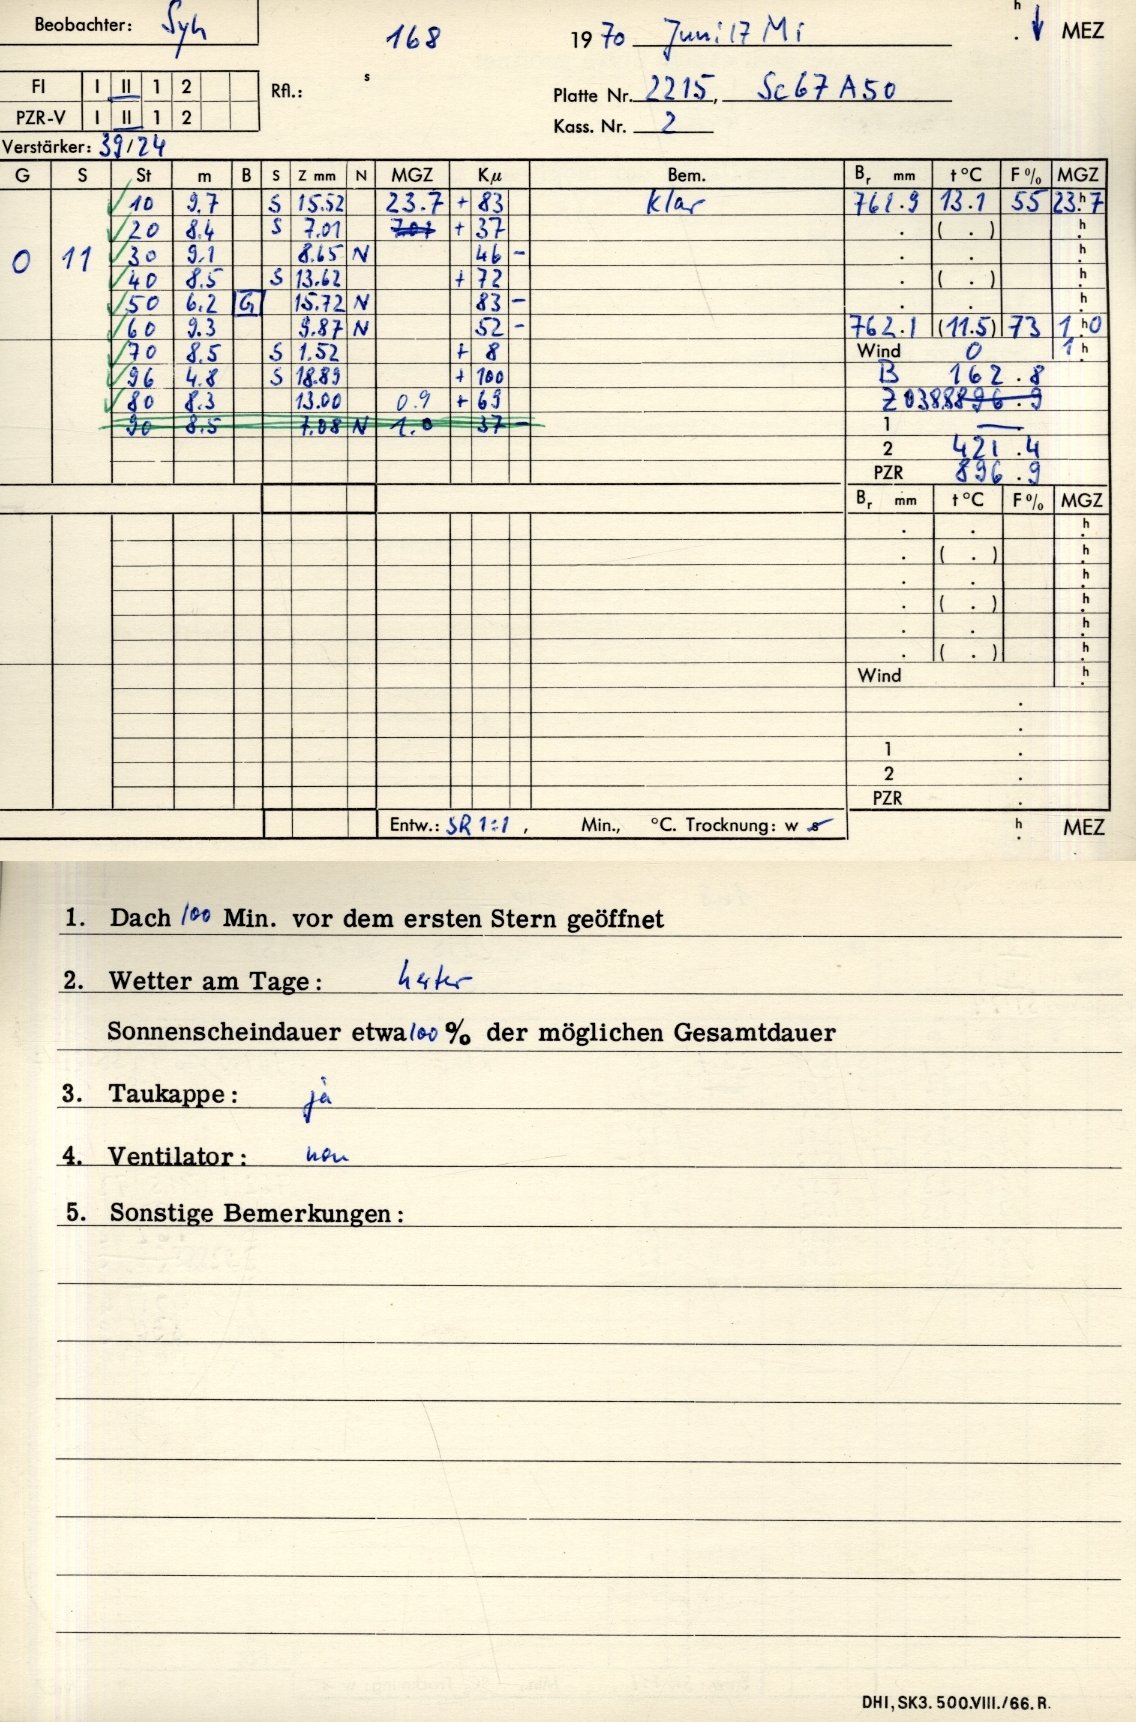 Beobachter: Syh
168
1970 Juni 17 Mi
h ↓ MEZ
FI I II 1 2
Rfl.: s
Platte Nr. 2215, Sc67 A50
PZR-V I II 1 2
Kass. Nr. 2
Verstärker: 39/24
G S St m B S Z mm N MGZ Kμ Bem. Br mm t °C F % MGZ
✓ 10 9.7 S 15.52 23.7 + 83 klar 761.9 13.1 55 23.h7
✓ 20 8.4 S 7.01 701 + 37 . ( . ) h
0 11 ✓ 30 9.1 8.65 N 46 - . . h
✓ 40 8.5 S 13.62 + 72 . ( . ) h
✓ 50 6.2 G 15.72 N 83 - . . h
✓ 60 9.3 9.87 N 52 - 762.1 (11.5) 73 1 h0
✓ 70 8.5 S 1.52 + 8 Wind 0 1 h
✓ 96 4.8 S 18.89 + 100 B 162.8
✓ 80 8.3 13.00 0.9 + 69 Z 0388896.9
90 8.5 7.08 N 1.0 37 - 1 —
2 421.4
PZR 896.9
Br mm t °C F % MGZ
. . h
. ( . ) h
. . h
. ( . ) h
. . h
. ( . ) h
Wind h
.
.
1 .
2 .
PZR .
Entw.: SR 1:1 , Min., °C. Trocknung: w s
h MEZ
1. Dach 100 Min. vor dem ersten Stern geöffnet
2. Wetter am Tage: heiter
Sonnenscheindauer etwa 100 % der möglichen Gesamtdauer
3. Taukappe: ja
4. Ventilator: nein
5. Sonstige Bemerkungen:
DHI, SK3. 500.VIII./66. R.